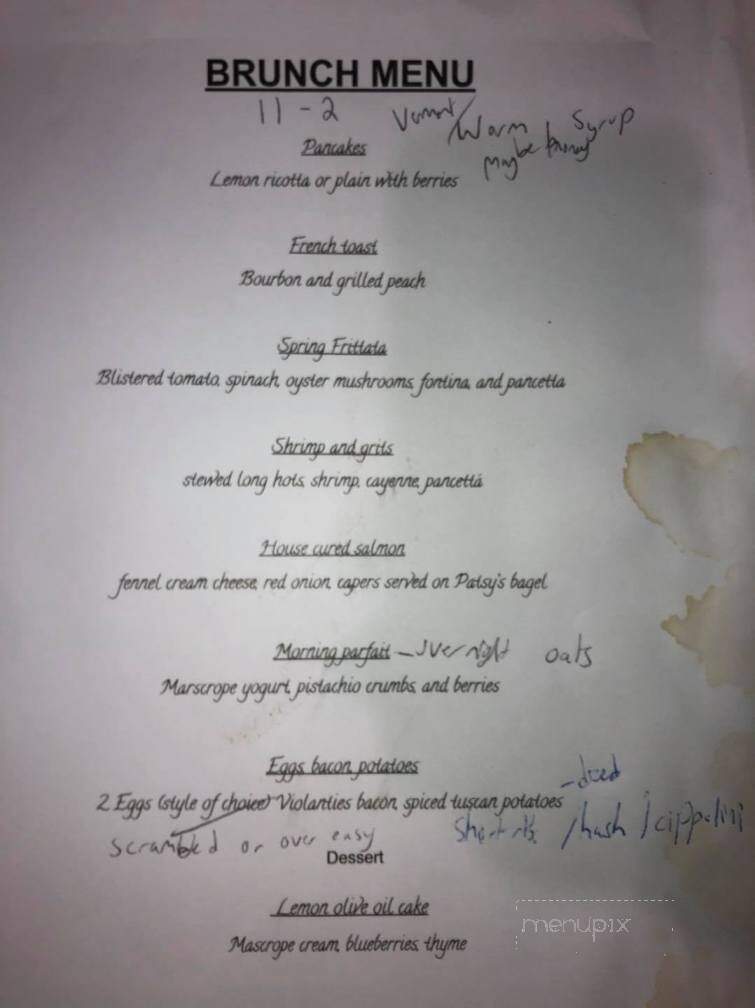 BRUNCH MENU
11 - 2
Vermont / Warm Syrup
Maybe honey
Pancakes
Lemon ricotta or plain with berries
French toast
Bourbon and grilled peach
Spring Frittata
Blistered tomato, spinach, oyster mushrooms, fontina, and pancetta
Shrimp and grits
stewed long hots, shrimp, cayenne, pancetta
House cured salmon
fennel cream cheese, red onion, capers served on Patsy's bagel
Morning parfait - overnight oats
Marscrope yogurt, pistachio crumbs, and berries
Eggs, bacon, potatoes
- diced
2 Eggs (style of choice) Violanties bacon, spiced tuscan potatoes
scrambled or over easy
Short rib / hash / cippolini
Dessert
Lemon olive oil cake
Mascrope cream, blueberries, thyme
menupix